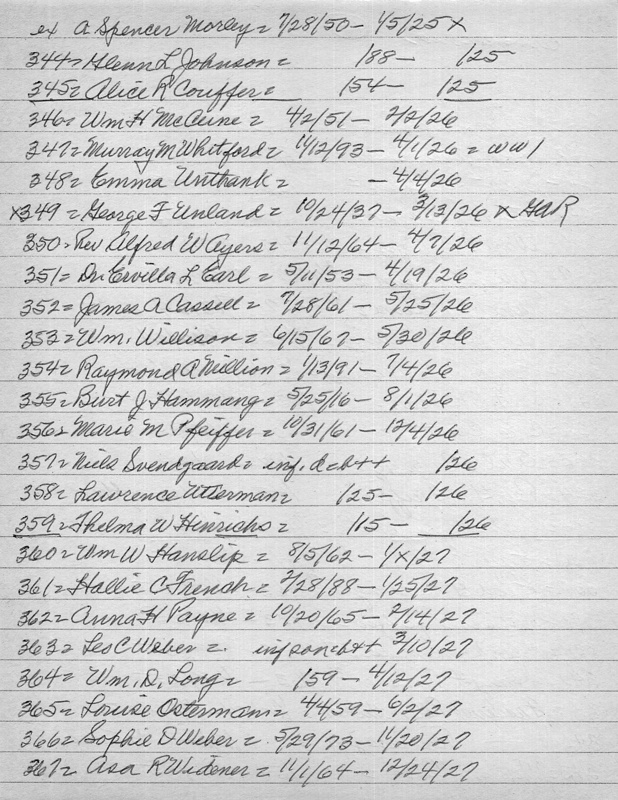 ex A Spencer Morley = 7/28/50 – 1/5/25 x
344 = Glenn L Johnson = /88 – /25
345 = Alice R Couffer = /54 – /25
346 = Wm H McCune = 4/2/51 – 2/2/26
347 = Murray M Whitford = 11/12/93 – 4/1/26 = WW1
348 = Emma Unthank = – 4/4/26
x349 = George F Unland = 10/24/37 – 3/13/26 x GAR
350 = Rev Alfred W Ayers = 11/12/64 – 4/7/26
351 = Dr. Ervilla L Earl = 5/11/53 – 4/19/26
352 = James A Cassell = 7/28/61 – 5/25/26
353 = Wm. Willison = 6/15/67 – 5/30/26
354 = Raymond A Million = 1/13/91 – 7/4/26
355 = Burt J Hammang = 5/25/16 – 8/1/26
356 = Marie M Pfeiffer = 10/31/61 – 12/4/26
357 = Niels Svendgaard = inf. d. c b++ /26
358 = Lawrence Utterman = /25 – /26
359 = Thelma W Hinrichs = /15 – /26
360 = Wm W Hanslip = 8/5/62 – 1/x/27
361 = Hallie C French = 2/28/88 – 1/25/27
362 = Anna H Payne = 10/20/65 – 2/14/27
363 = Leo C Weber = inf son c b++ 3/10/27
364 = Wm. D. Long = /59 – 4/12/27
365 = Louise Ostermann = 4/4/59 – 6/2/27
366 = Sophie D Weber = 5/29/73 – 11/20/27
367 = Asa R Widener = 11/1/64 – 12/24/27